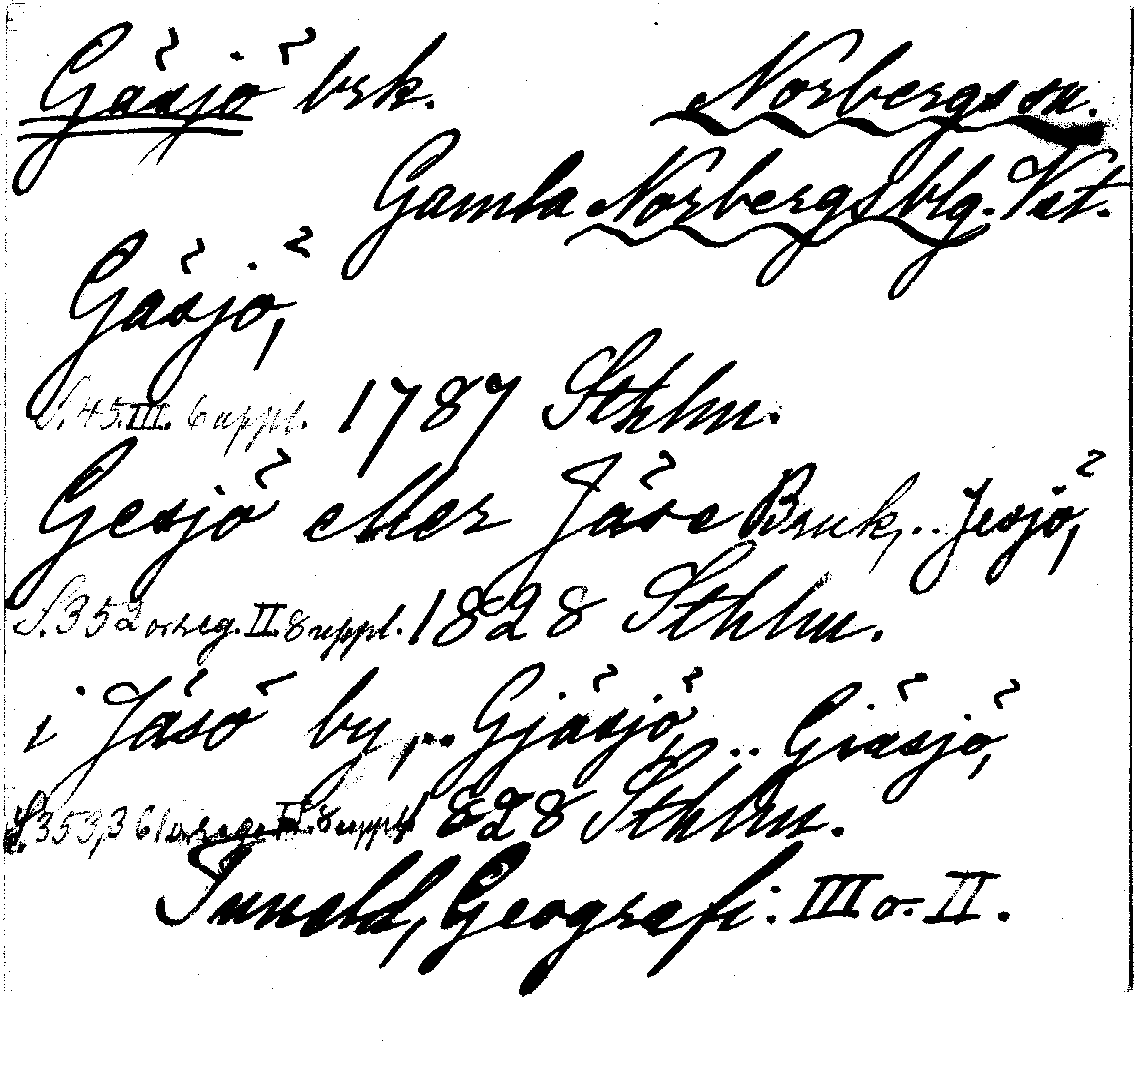 Gäsjö brk. Norbergs sn.
Gamla Norbergs blg. Vst.
Gäsjö,
S. 45. III. 6 uppl. 1787 Sthlm.
Gesjö eller Jäse Bruk, .. Jesjö,
S. 352 o. reg. II. 8 uppl. 1828 Sthlm.
i Jäsö by, .. Gjäsjö, .. Giäsjö,
S. 353, 361 o. reg. II. 8 uppl. 1828 Sthlm.
Tuneld, Geografi: III o. II.